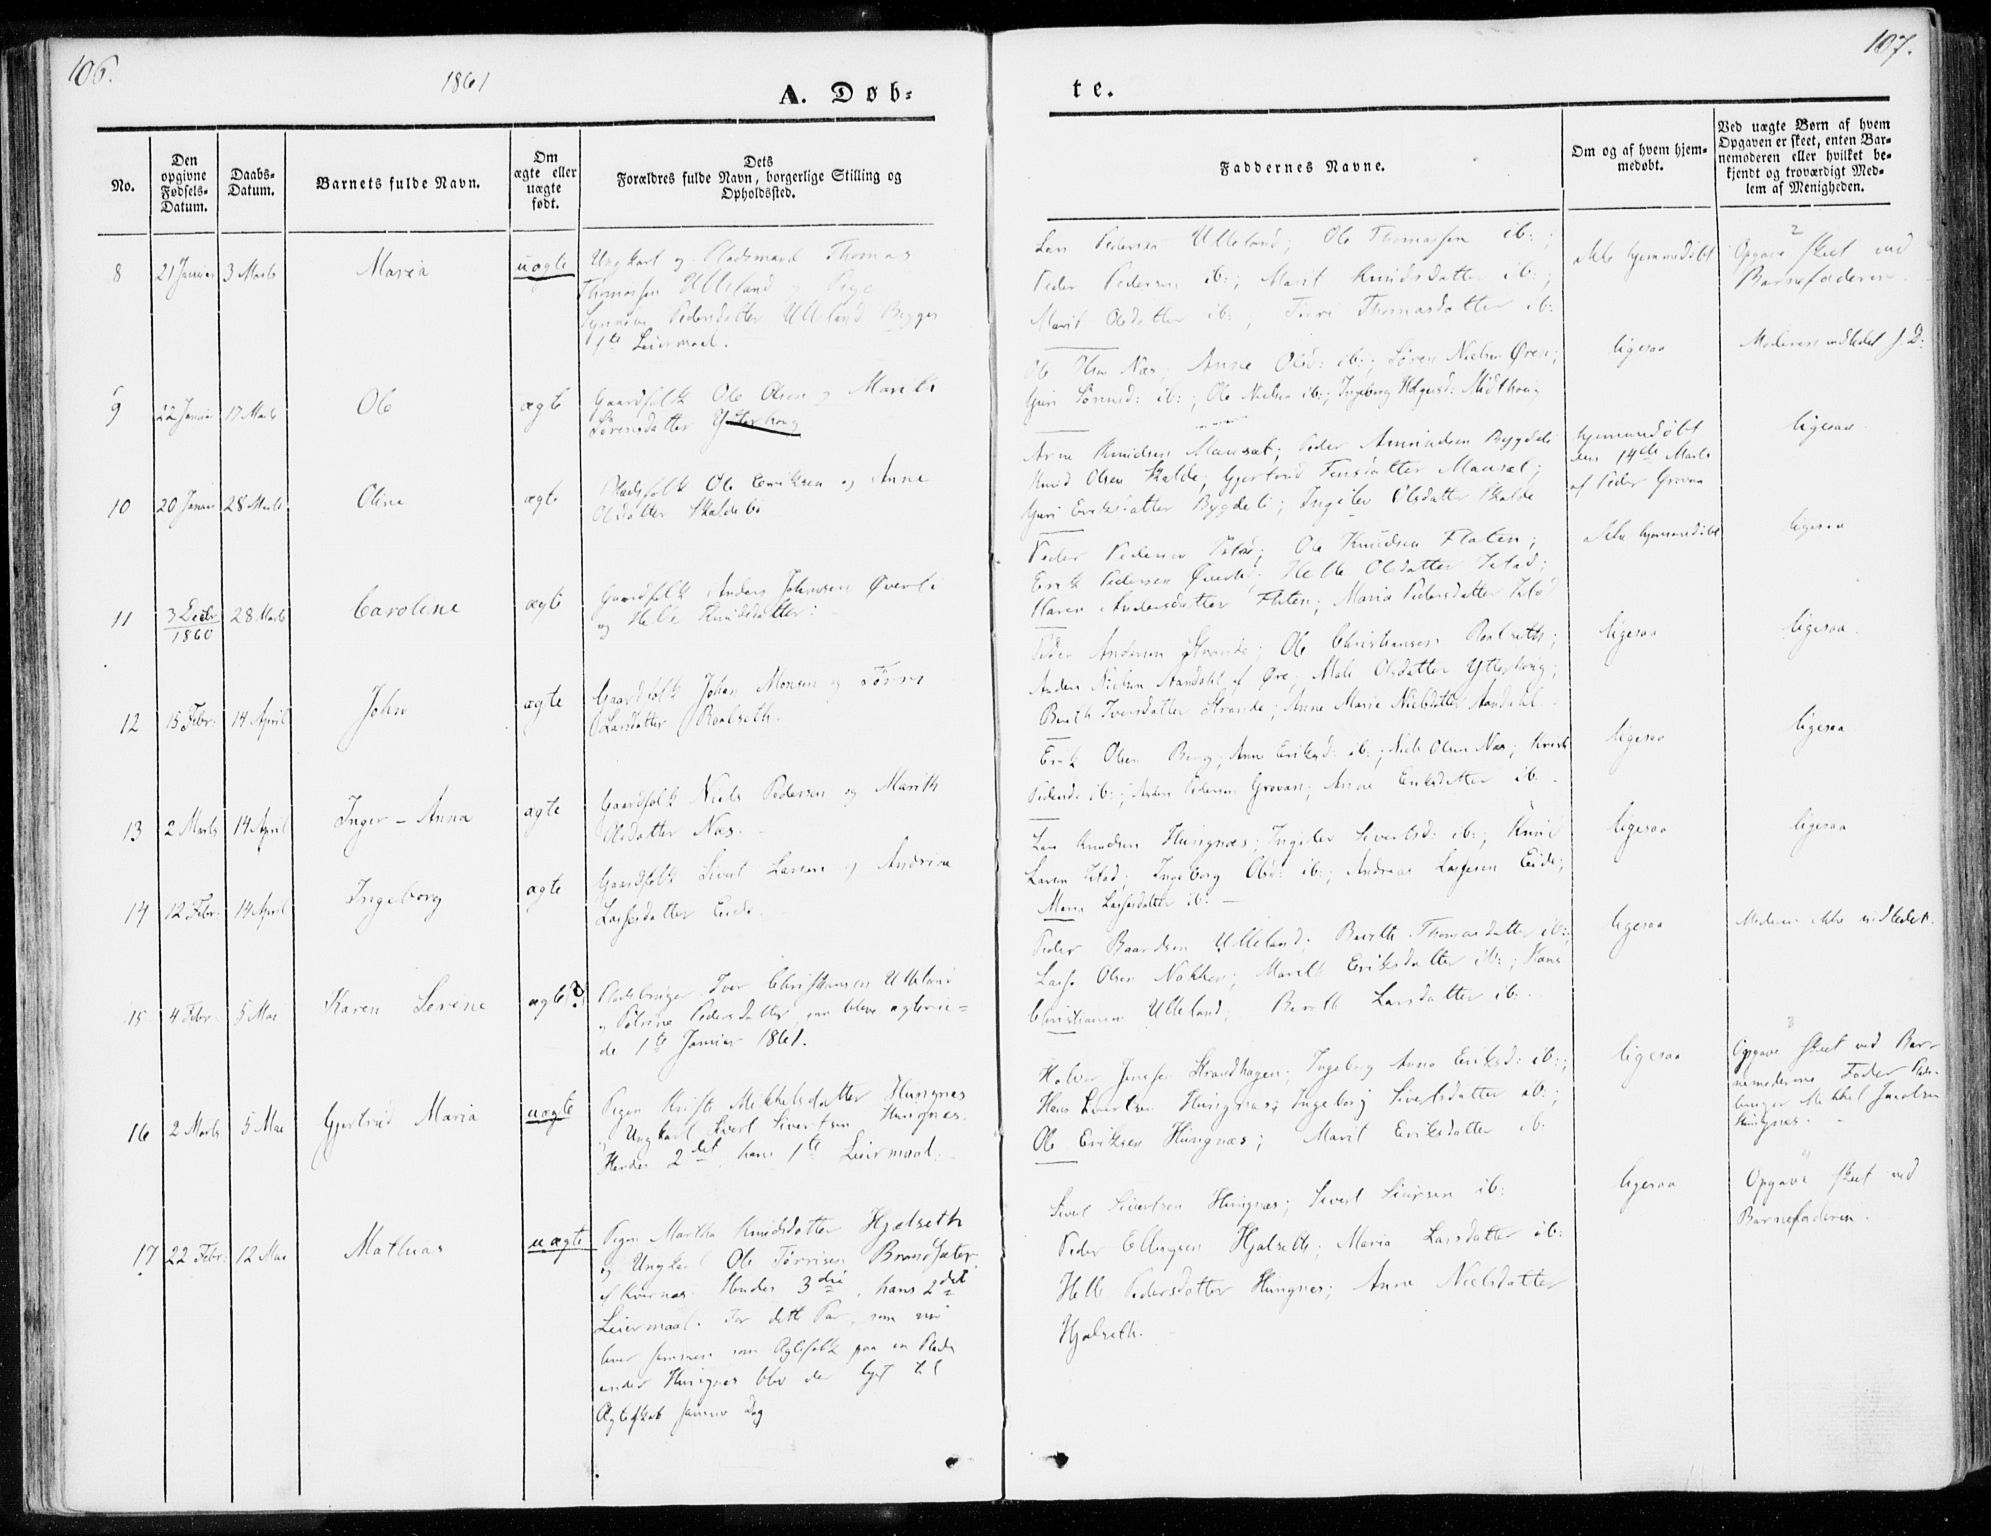 106.
1861
A. Døb-
No.
Den opgivne Fødsels-Datum.
Daabs-Datum.
Barnets fulde Navn.
Om ægte eller uægte født.
Dets
Forældres fulde Navn, borgerlige Stilling og
Opholdssted.
8 21 Januar 3 Marts Maria uægte Ungkarl og Pladsmand Thomas
Thomassen Ulleland og Pige
Synnøve Pedersdatter Ulleland Begges
1ste Leiermaal.
9 22 Januar 17 Marts Ole ægte Gaardfolk Ole Olsen og Marith
Sørensdatter Ytterhoug
10 20 Januar 28 Marts Oline ægte Pladsfolk Ole Eriksen og Anne
Olsdatter Skaldeli
11 3 Decbr 1860 28 Marts Caroline ægte Gaardfolk Anders Johnsen Øverli
og Helle Knudsdatter.
12 15 Febr: 14 April John ægte Gaardfolk Johan Monsen og Tørri
Larsdatter Roalseth.
13 2 Marts 14 April Inger-Anna ægte Gaardfolk Niels Pedersen og Marith
Olsdatter Næs.
14 12 Febr. 14 April Ingeborg ægte Gaardfolk Sivert Larsen og Andrine
Lassesdatter Eide.
15 4 Febr. 5 Mai Karen Serine ægte? Pladsbruger Iver Christiansen Ulleland
og Pedersdatter, som bleve ægtevie-
de 1ste Januar 1861.
16 2 Marts 5 Mai Gjertrud Maria uægte Pigen Mikkelsdatter Hungnes
Ungkarl Sivert Sivertsen Hungnes.
Hendes 2det, hans 1ste Leiermaal.
17 22 Febr: 12 Mai Mathias uægte Pigen Martha Knudsdatter Hjelseth
og Ungkarl Ole Tørrisen Brandsæter
af Kvernæs. Hendes 3die, hans 2det
Leiermaal. For dette Par, som nu
lever sammen som Ægtefolk paa en Plads
under Hungnes blev der lyst til
Ægteskab samme Dag
107.
te.
Faddernes Navne.
Om og af hvem hjem-
medøbt.
Ved uægte Børn af hvem
Opgaven er skeet, enten Bar-
nemoderen eller hvilket be-
kjendt og troværdigt Med-
lem af Menigheden.
Lars Pedersen Ulleland; Ole Thomassen ib:;
Peder Pedersen ib:; Marit Knudsdatter ib:;
Marit Olsdatter ib:; Thomasdatter ib:
ikke hjemmedøbt
Opgave skeet ved
Barnefaderen.
Ole Næs; Anne Olsd: ib:; Søren Nielsen Øren;
Guri Sørensd: ib:; Ole Nielsen ib:; Ingeborg Midthoug
ligesaa
Moderen indledet s. D:
Arne Knudsen Mansæt; Peder Amundsen Bygdeli
Knud Olsen Skalde; Gjertrud Mansæt;
Guri Eriksdatter Bygdeli; Ingeber Olsdatter Skalde
hjemmedøbt
den 14de Marts
af Peder Grovan
ligesaa.
Peder Pedersen Istad; Ole Knudsen Flaten;
Erik Pedersen Øverli; Helle Olsdatter Istad;
Karen Andersdatter Flaten; Maria Pedersdatter Istad
ikke hjemmedøbt
ligesaa
Peder Andersen Strande; Ole Christiansen Roalseth;
Anders Nielsen Aandahl af Øre; Mali Olsdatter Ytterhoug;
Berith Iversdatter Strande; Anne Maria Nielsdatter Aandahl.
ligesaa
ligesaa.
Erik Olsen Berg; Anne Eriksd: ib:; Niels Olsen Næs;
Pedersd: ib:; Anders Pedersen Grovan; Anne Eriksdatter ib.
ligesaa
ligesaa
Lars Knudsen Hungnæs; Ingeber Sivertsd: ib:; Knud
Larsen Istad; Ingeborg Olsd: ib:; Andreas Lassesen Eide;
Maria Lassesdatter ib:
ligesaa
ligesaa
Peder Baardsen Ulleland; Berith Thomasdatter ib:;
Lasse Olsen Nakken; Marith Eriksdatter ib:; Hans
Christiansen Ulleland; Berith Larsdatter ib:
ligesaa
Moderen ikke indledet.
Halvor Jensen Strandhagen; Ingeborg Anna Eriksd: ib:;
Hans Sivertsen Hungnæs; Ingeborg Sivertsdatter ib:;
Ole Eriksen Hungnæs; Marit Eriksdatter ib:
ligesaa
Opgave skeet ved Bar-
nemoderens Fader Plads-
bruger Mikkel Jacobsen
Hungnes.
Sivert Sivertsen Hungnæs; Sivert Siversen ib:
Peder Ellingsen Hjelseth; Maria Larsdatter ib:
Helle Pedersdatter Hungnes; Anne Nielsdatter
Hjelseth.
ligesaa
Opgave skeet ved
Barnefaderen.